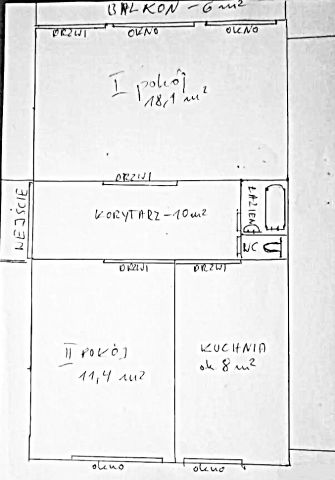 BALKON - 6 m²
DRZWI OKNO OKNO
I pokój
18,1 m²
DRZWI
WEJŚCIE
KORYTARZ - 10 m²
ŁAZIEN
WC
DRZWI DRZWI
II POKÓJ
11,4 m²
KUCHNIA
ok 8 m²
okno okno